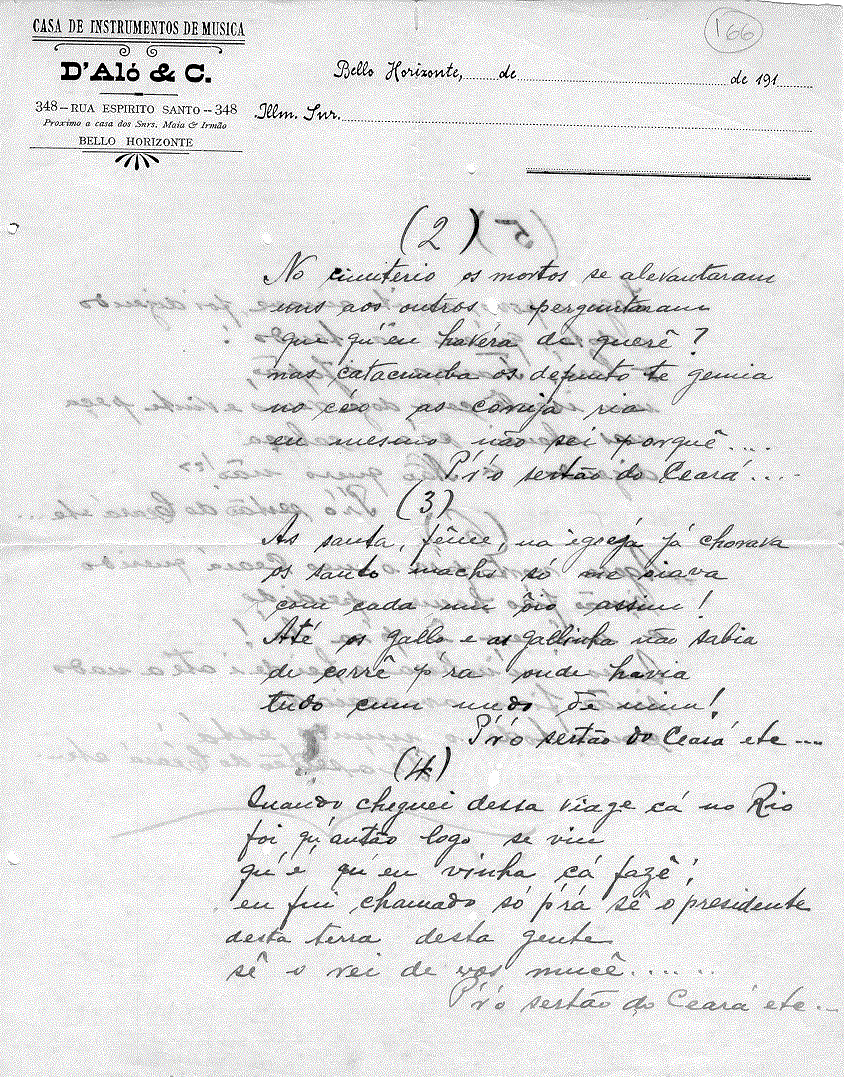 166
CASA DE INSTRUMENTOS DE MUSICA
D'Aló & C.
348 — RUA ESPIRITO SANTO -- 348
Proximo a casa dos Snrs. Maia & Irmão
BELLO HORIZONTE
Bello Horizonte, de de 191
Illm. Snr.
(2)
No cimitério os mortos se alevantaram
uns aos outros perguntaram
que qu'eu havéra de querê?
nas catacumba os defunto te gemia
no céo as coruja ria
eu mesmo não sei porquê....
P'r'o sertão do Ceará....
(3)
As santa, fême, na igreja já chorava
os santo macho só me oiava
com cada um ôio assim!
Até os gallo e as gallinha não sabia
de corrê p'ra onde havia
tudo cum medo de mim!
P'r'o sertão do Ceará etc....
(4)
Quando cheguei dessa viage cá no Rio
foi qu'antão logo se viu
qu'é qu'eu vinha cá fazê;
eu fui chamado só p'rá sê o presidente
desta terra desta gente
sê o rei de vos mucê......
P'r'o sertão do Ceará etc...